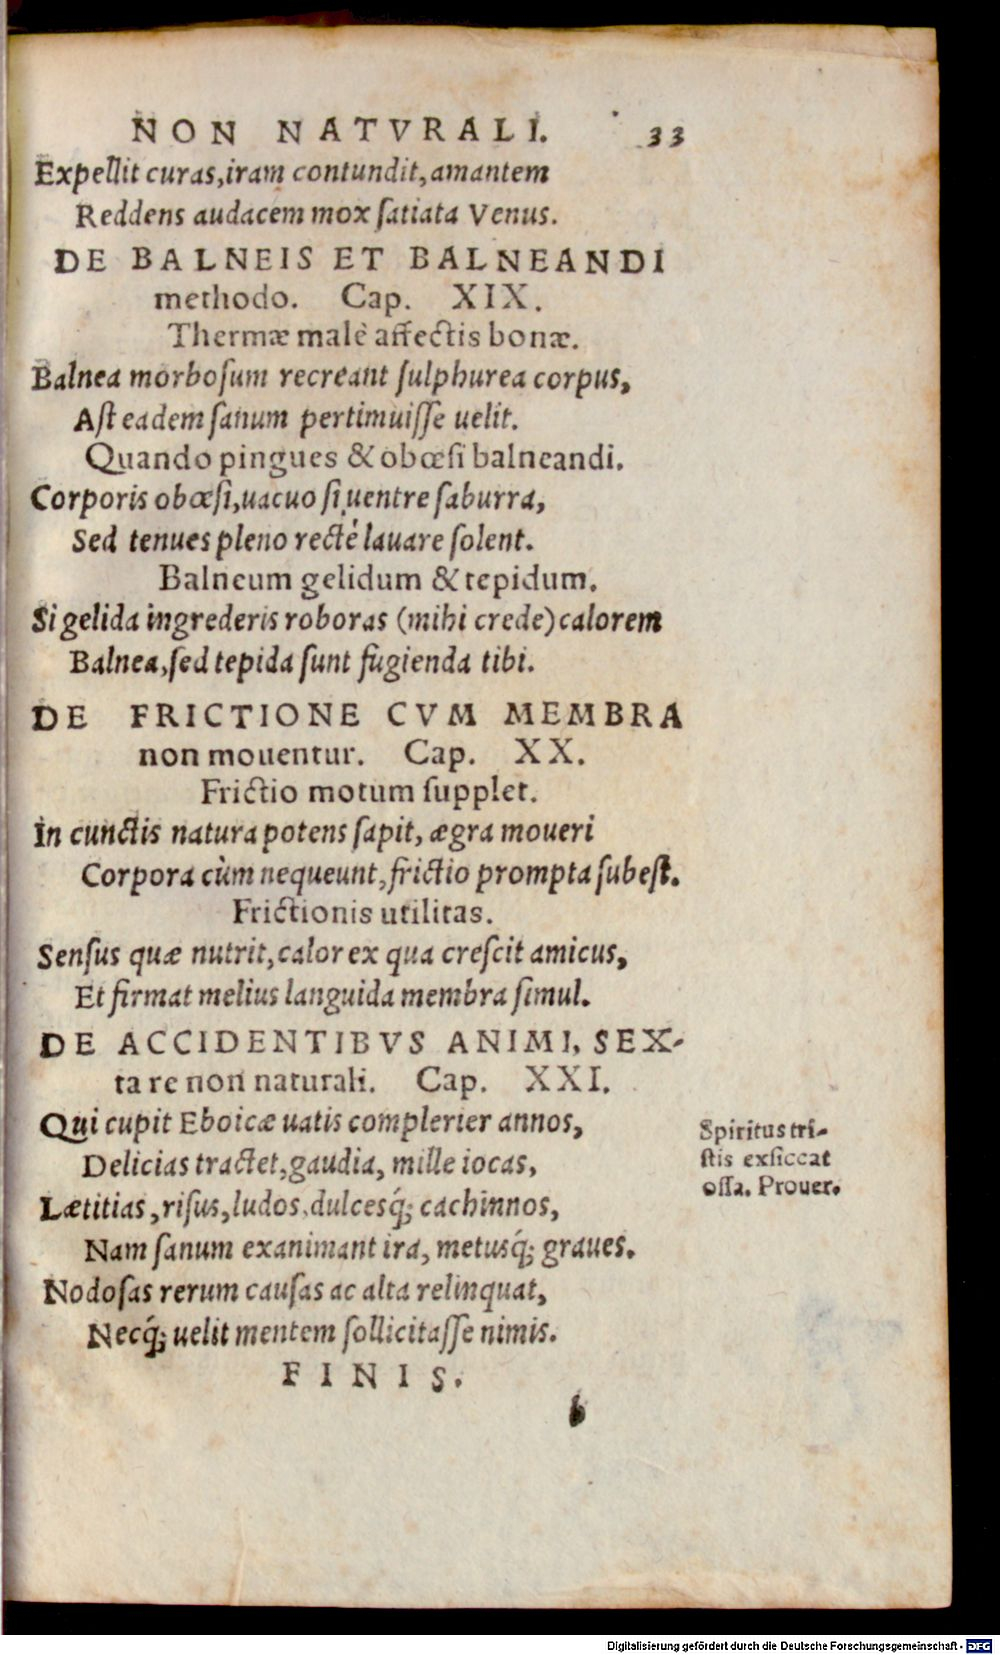 NON NATVRALI. 33
Expellit curas, iram contundit, amantem
Reddens audacem mox ſatiata Venus.
DE BALNEIS ET BALNEANDI
methodo. Cap. XIX.
Thermæ malè affectis bonæ.
Balnea morboſum recreant ſulphurea corpus,
Aſt eadem ſanum pertimuiſſe uelit.
Quando pingues & obœſi balneandi.
Corporis obœſi, uacuo ſi uentre ſaburra,
Sed tenues pleno rectè lauare ſolent.
Balneum gelidum & tepidum.
Si gelida ingrederis roboras (mihi crede) calorem
Balnea, ſed tepida ſunt fugienda tibi.
DE FRICTIONE CVM MEMBRA
non mouentur. Cap. XX.
Frictio motum ſupplet.
In cunctis natura potens ſapit, ægra moueri
Corpora cùm nequeunt, frictio prompta ſubeſt.
Frictionis utilitas.
Senſus quæ nutrit, calor ex qua creſcit amicus,
Et firmat melius languida membra ſimul.
DE ACCIDENTIBVS ANIMI, SEX-
ta re non naturali. Cap. XXI.
Qui cupit Eboicæ uatis complerier annos,
Delicias tractet, gaudia, mille iocas,
Lætitias, riſus, ludos, dulcesq́; cachinnos,
Nam ſanum exanimant ira, metusq́; graues.
Nodoſas rerum cauſas ac alta relinquat,
Necq́; uelit mentem ſollicitaſſe nimis.
FINIS.
b
Spiritus tri-
ſtis exſiccat
oſſa. Prouer.
Digitalisierung gefördert durch die Deutsche Forschungsgemeinschaft - DFG